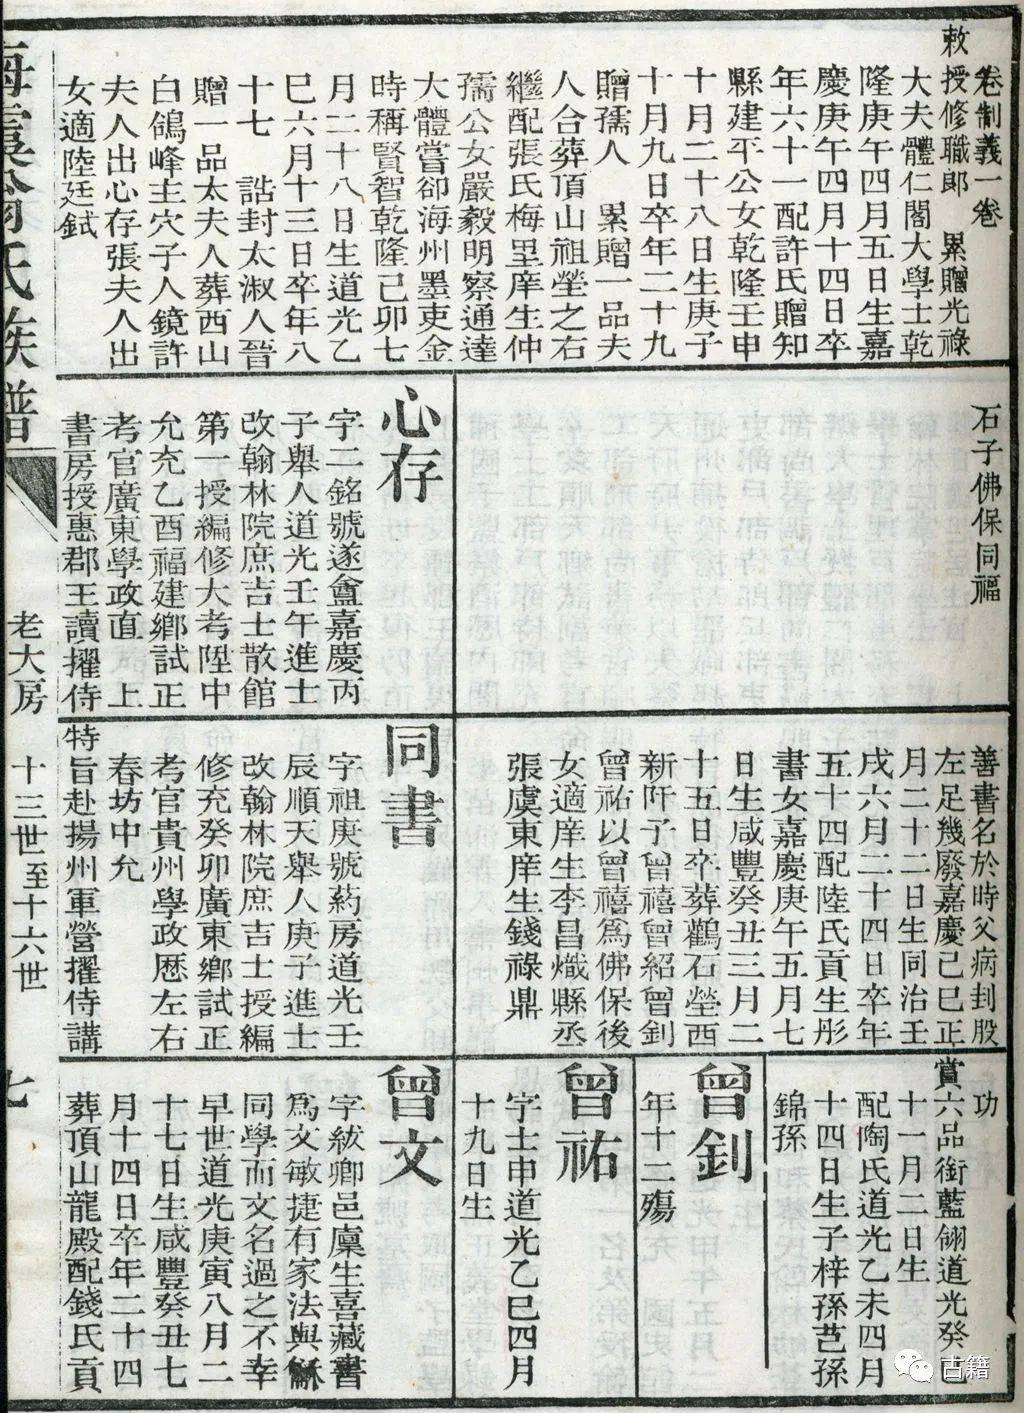 卷制義一卷
敕授修職郎　累贈光祿
大夫體仁閣大學士乾
隆庚午四月五日生嘉
慶庚午四月十四日卒
年六十一配許氏贈知
縣建平公女乾隆壬申
十月二十八日生庚子
十月九日卒年二十九
贈孺人　累贈一品夫
人合葬頂山祖塋之右
繼配張氏梅里庠生仲
孺公女嚴毅明察通達
大體嘗卻海州墨吏金
時稱賢智乾隆己卯七
月二十八日生道光乙
巳六月十三日卒年八
十七　誥封太淑人晉
贈一品太夫人葬西山
白鴿峰主穴子人鏡許
夫人出心存張夫人出
女適陸廷鉽
石子佛保同福
心存
字二銘號遂盦嘉慶丙
子舉人道光壬午進士
改翰林院庶吉士散館
第一授編修大考陞中
允充乙酉福建鄉試正
考官廣東學政直上
書房授惠郡王讀擢侍
善書名於時父病刲股
左足幾廢嘉慶己巳正
月二十二日生同治壬
戌六月二十四日卒年
五十四配陸氏貢生彤
書女嘉慶庚午五月七
日生咸豐癸丑三月二
十五日卒葬鸛石塋西
新阡子曾禧曾紹曾釗
曾祐以曾禧為佛保後
女適庠生李昌熾縣丞
張虞東庠生錢祿鼎
同書
字祖庚號葯房道光壬
辰順天舉人庚子進士
改翰林院庶吉士授編
修充癸卯廣東鄉試正
考官貴州學政歷左右
春坊中允
特旨赴揚州軍營擢侍講
功
賞六品銜藍翎道光癸巳
十一月二日生
配陶氏道光乙未四月
十四日生子梓孫芑孫
錦孫
曾釗
年十二殤
曾祐
字士申道光乙巳四月
十九日生
曾文
字紱卿邑廩生喜藏書
為文敏捷有家法與龢
同學而文名過之不幸
早世道光庚寅八月二
十七日生咸豐癸丑七
月十四日卒年二十四
葬頂山龍殿配錢氏貢
海虞翁氏族譜
老大房
十三世至十六世
七
古籍